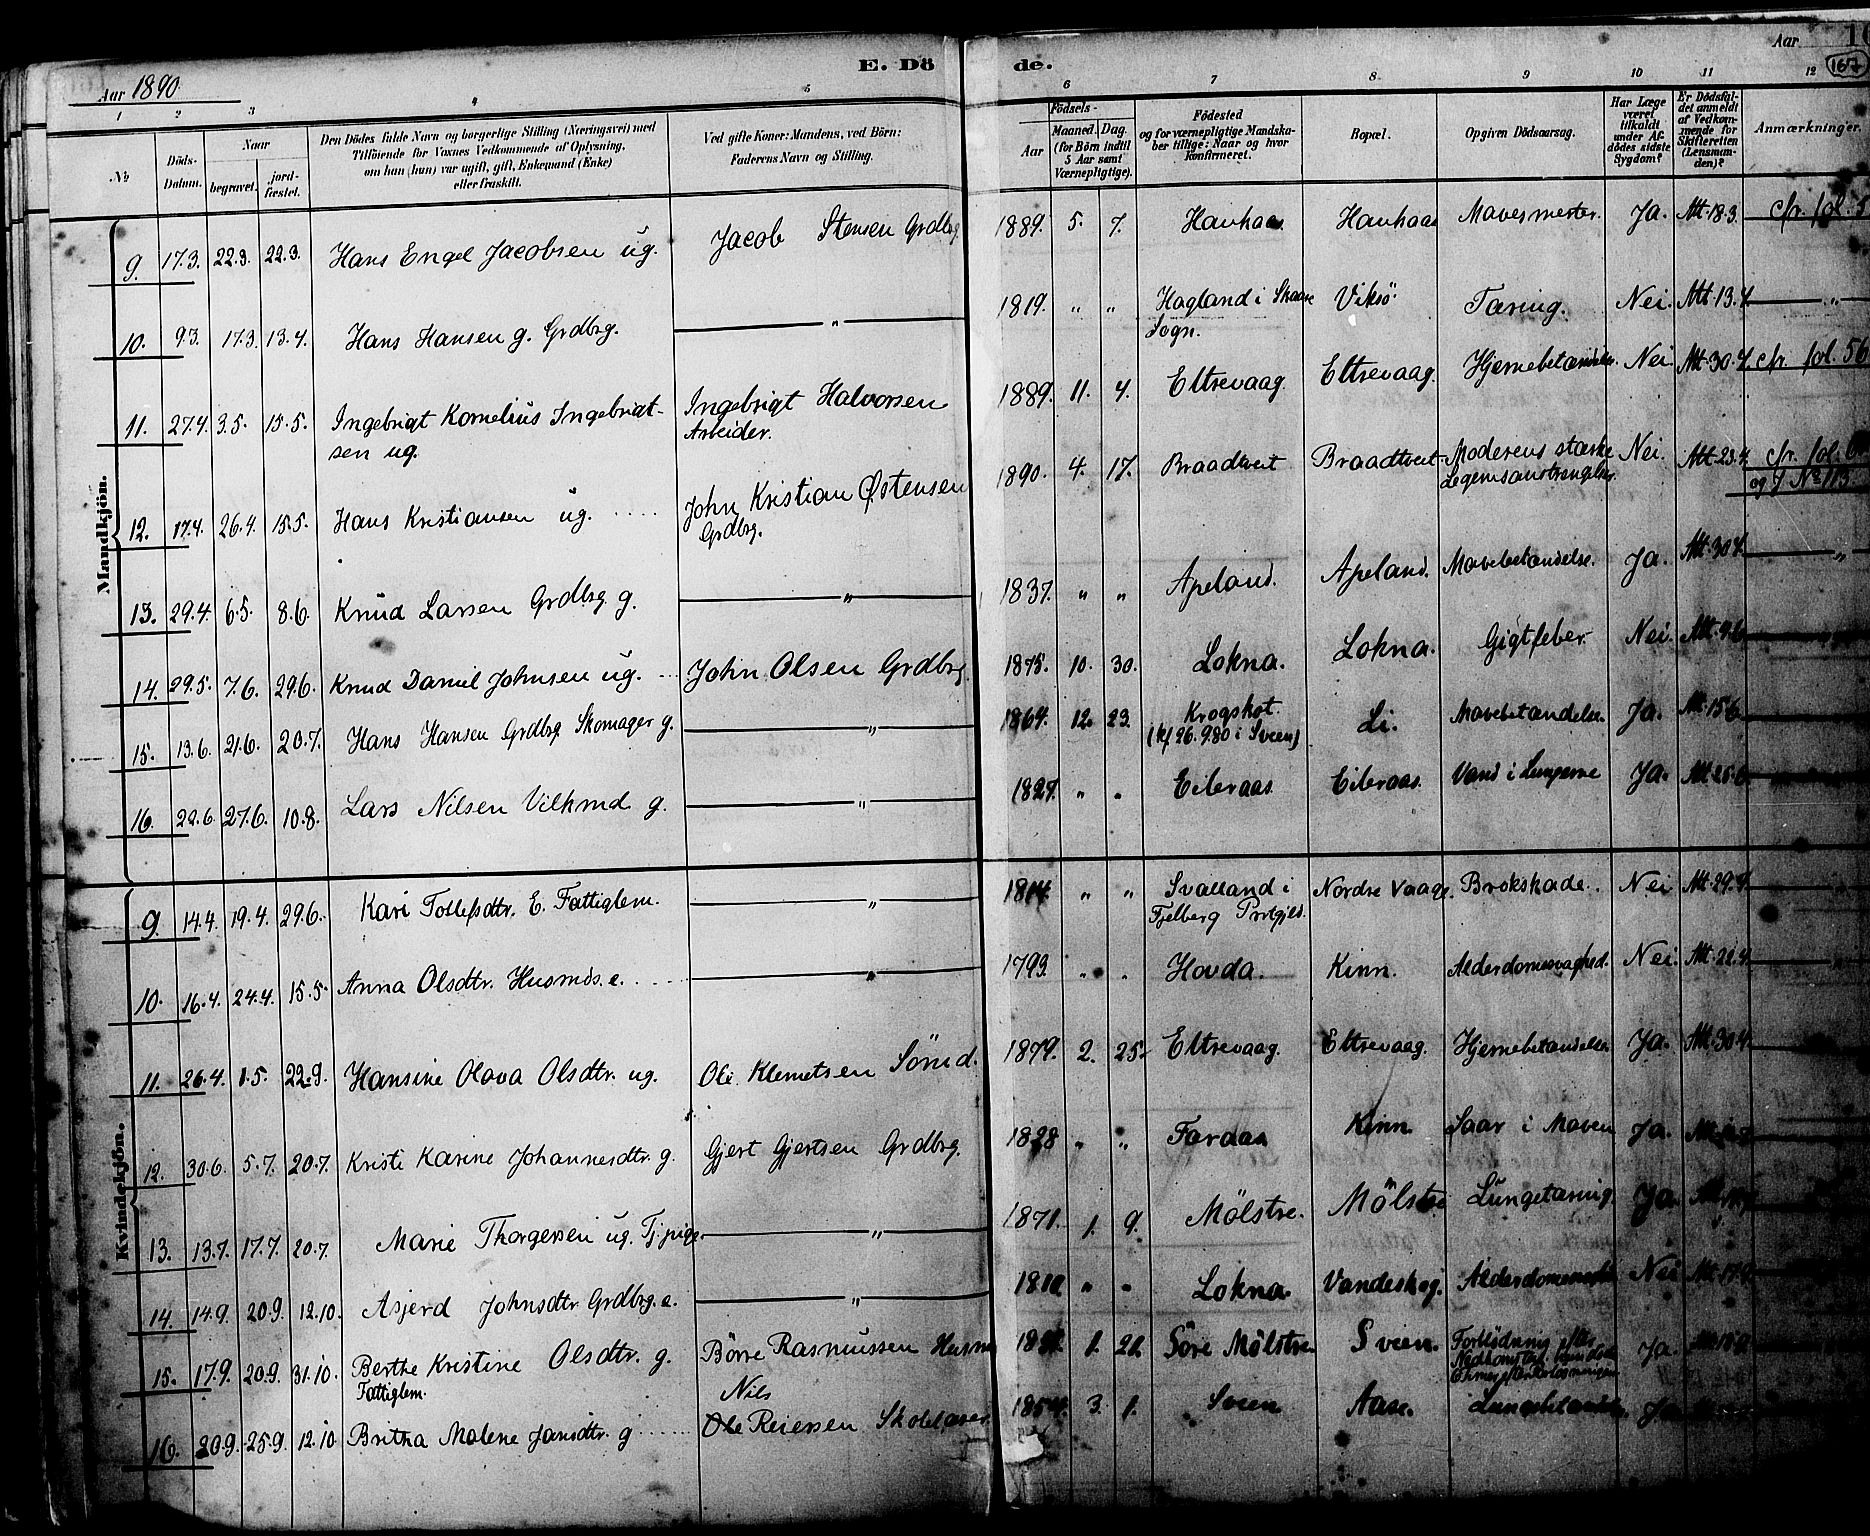 E. Döde.
Aar 1890
Aar
167
1 2 3 4 5 6 7 8 9 10 11 12
No
Döds-Datum.
Naar
begravet.
jordfæstet.
Den Dödes fulde Navn og borgerlige Stilling (Næringsvei) med
Tilföiende for Voxnes Vedkommende af Oplysning,
om han (hun) var ugift, gift, Enkemand (Enke)
eller fraskilt.
Ved gifte Koner: Mandens, ved Börn:
Faderens Navn og Stilling.
Födsels-
Aar
Maaned. Dag.
(for Börn indtil
5 Aar samt
Værnepligtige).
Födested
og for værnepligtige Mandska-
ber tillige: Naar og hvor
konfirmeret.
Bopæl.
Opgiven Dödsaarsag.
Har Læge
været
tilkaldt
under Af-
dödes sidste
Sygdom?
Er Dödsfal-
det anmeldt
af Vedkom-
mende for
Skifteretten
(Lensman-
den)?
Anmærkninger.
Mandkjön.
9. 17.3. 22.3. 22.3. Hans Engel Jacobsen ug. Jacob Stensen Grdbrg. 1889. 5. 7. Hauhaas Hauhaas Mavesmerter. Ja. Att. 18.3. cfr. fol.
10. 9.3. 17.3. 13.4. Hans Hansen g. Grdbrg. " 1819. " " Hagland i Skaare Viksö. Tæring. Nei. Att. 13.4. "
Sogn.
11. 27.4. 3.5. 15.5. Ingebrigt Kornelius Ingebrigt- Ingebrigt Halvorsen 1889. 11. 4. Eltrevaag. Eltrevaag. Hjernebetændelse. Nei. Att. 30.4. cfr. fol. 56
sen ug. Arbeider.
12. 17.4. 26.4. 15.5. Hans Kristiansen ug. John Kristian Østensen 1890. 4. 17. Braadtveit Braadtveit Moderens stærke Nei. Att. 23.4. cfr. fol.
Grdbrg. Legemsanstrengelser. og J No 113.
13. 29.4. 6.5. 8.6. Knud Larsen Grdbrg. g. " 1837. " " Apeland. Apeland. Mavebetændelse. Ja. Att. 30.4. "
14. 29.5. 7.6. 29.6. Knud Daniel Johnsen ug. John Olsen Grdbrg. 1875. 10. 30. Lokna. Lokna. Gigtfeber. Nei. Att.
15. 13.6. 21.6. 20.7. Hans Hansen Grdbrg Skomager g. " 1864. 12. 23. Krogshot. Li. Mavebetændelse. Ja. Att. 15.6.
(kf 26.9.80 i Sveen)
16. 22.6. 27.6. 10.8. Lars Nilsen Vilkmd. g. " 1827. " " Eileraas Eileraas. Vand i Lungerne Ja. Att. 25.6.
Kvindekjön.
9. 14.4. 19.4. 29.6. Kari Tollefsdtr. E. Fattiglem. " 1814. " " Svalland i Nordre Vaage. Brokskade. Nei Att. 29.4. "
Fjelberg Prstgjld.
10. 16.4. 24.4. 15.5. Anna Olsdtr. Husmds. e. " 1793. " " Hovda. Kinn. Alderdomssvaghed. Nei. Att. 22.4. "
11. 26.4. 1.5. 22.9. Hansine Olava Olsdtr. ug. Ole Klemetsen Sömd. 1879. 2. 25. Eltrevaag. Eltrevaag. Hjernebetændelse Ja. Att. 30.4.
12. 30.6. 5.7. 20.7. Kristi Karine Johannesdtr. g. Gjert Gjertsen Grdbrg. 1828 " " Faraas Kinn Saar i Maven Ja. Att.
13. 13.7. 17.7. 20.7. Marie Thorgersen ug. Tj.pige. " 1871. 1. 9. Mölstre. Mölstre Lungetæring. Ja. Att.
14. 14.9. 20.9. 12.10. Asjerd Johnsdtr Grdbrg. e. " 1810 " " Lokna. Vandeskog. Nei Att.
15. 17.9. 20.9. 31.10. Berthe Kristine Olsdtr. g. Börre Rasmussen Husmd 1. 21. Söre Mölstre. Sveen. Forblödning efter Ja.
Fattiglem.
Nils
16. 20.9. 25.9. 12.10 Britha Malene Jansdtr. g. Ole Reiersen Skolelærer. 3. 1. Sveen. Aase. Lungebetændelse. Ja.